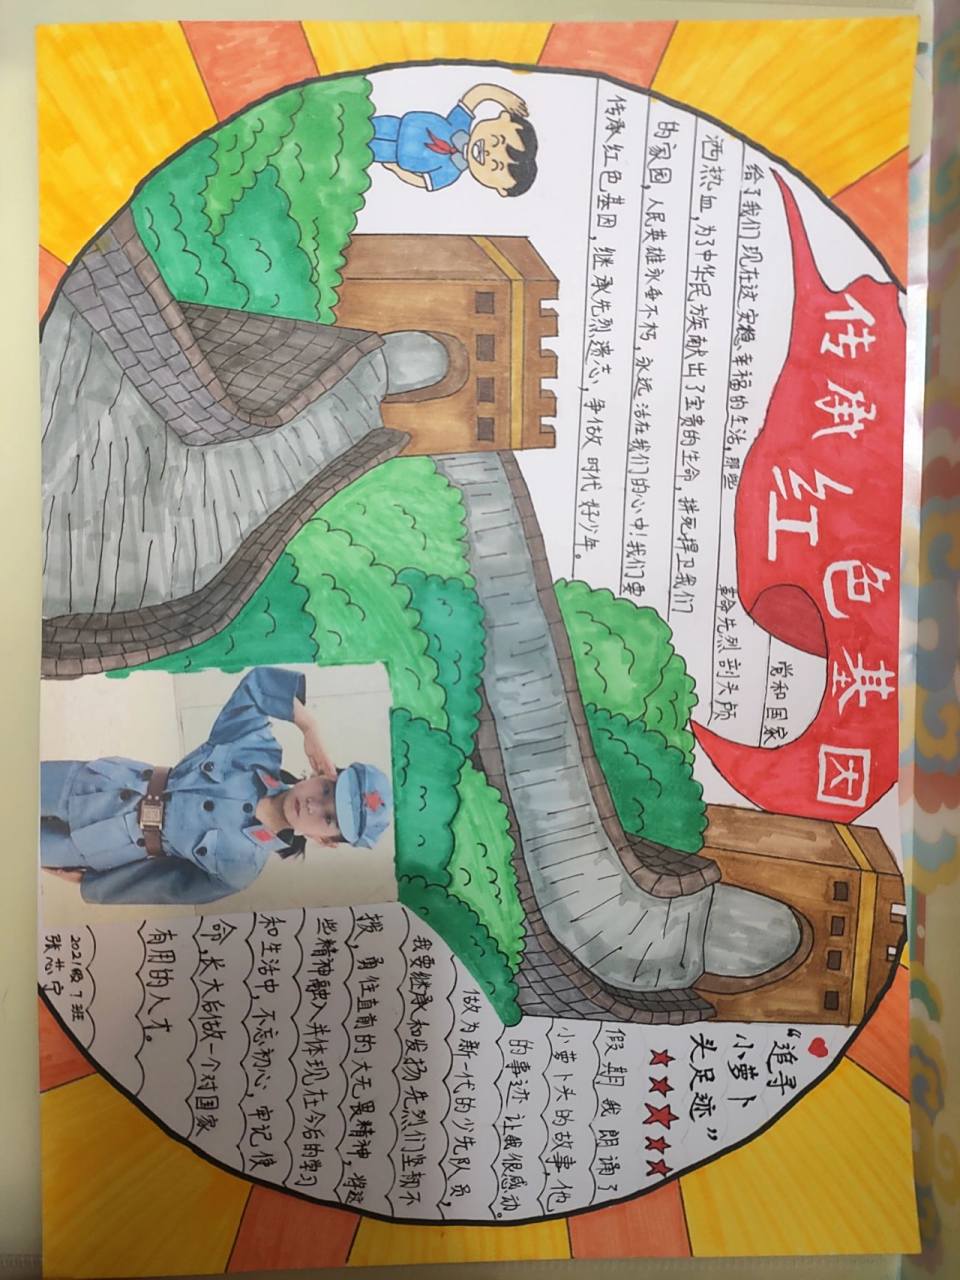 传承红色基因
党和国家
给了我们现在这安稳、幸福的生活，那些
革命先烈剖头颅
洒热血，为了中华民族献出了宝贵的生命，拼死捍卫我们
的家园，人民英雄永垂不朽，永远活在我们的心中！我们要
传承红色基因，继承先烈遗志，争做时代好少年。
“追寻
小萝卜
头足迹”
假期我朗诵了
小萝卜头的故事，他
的事迹让我很感动。
做为新一代的少先队员，
我要继承和发扬先烈们坚韧不
拔，勇往直前的大无畏精神，将这
些精神融入并体现在今后的学习
和生活中，不忘初心，牢记使
命，长大后做一个对国家
有用的人才。
2021级7班
张芯宁